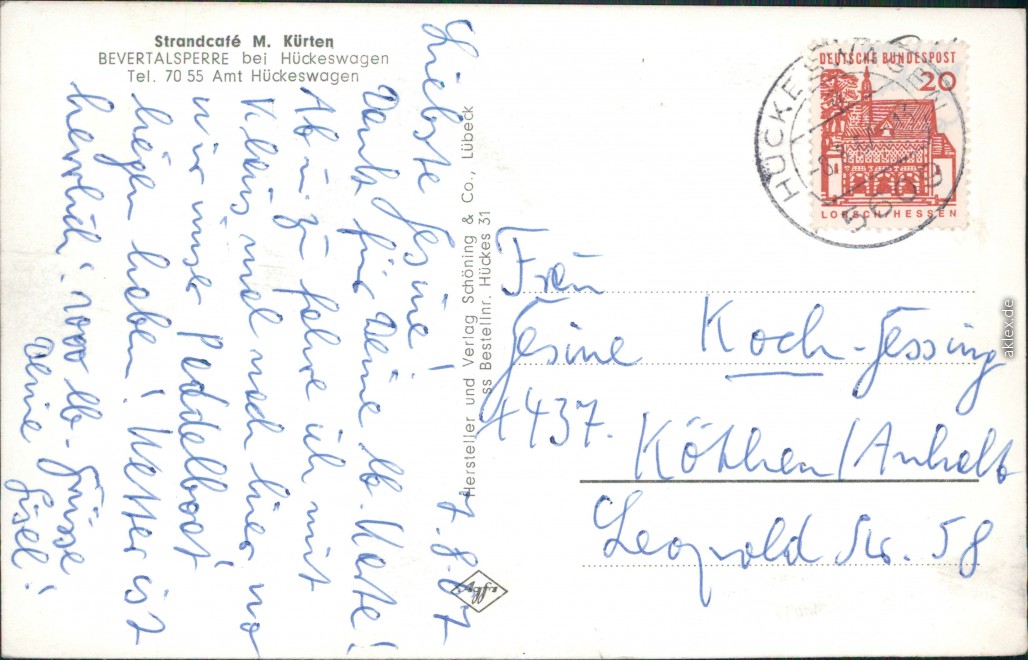 Strandcafé M. Kürten
BEVERTALSPERRE bei Hückeswagen
Tel. 70 55 Amt Hückeswagen
Liebste Gesine! 7.8.67
Dank für Deine lb. Karte!
Ab u. zu fahre ich mit
Klaus mal nach hier, wo
wir unser Paddelboot
liegen haben! Wetter ist
herrlich! 1000 lb. Grüsse
Deine Gisel!
Hersteller und Verlag Schöning & Co., Lübeck
ss Bestellnr. Hückes 31
HÜCKESWAGEN
5609
DEUTSCHE BUNDESPOST
20
LORSCH/HESSEN
Frau
Gesine Koch-Gessing
437. Köthen/Anhalt
Leopold Str. 58
akpool.de